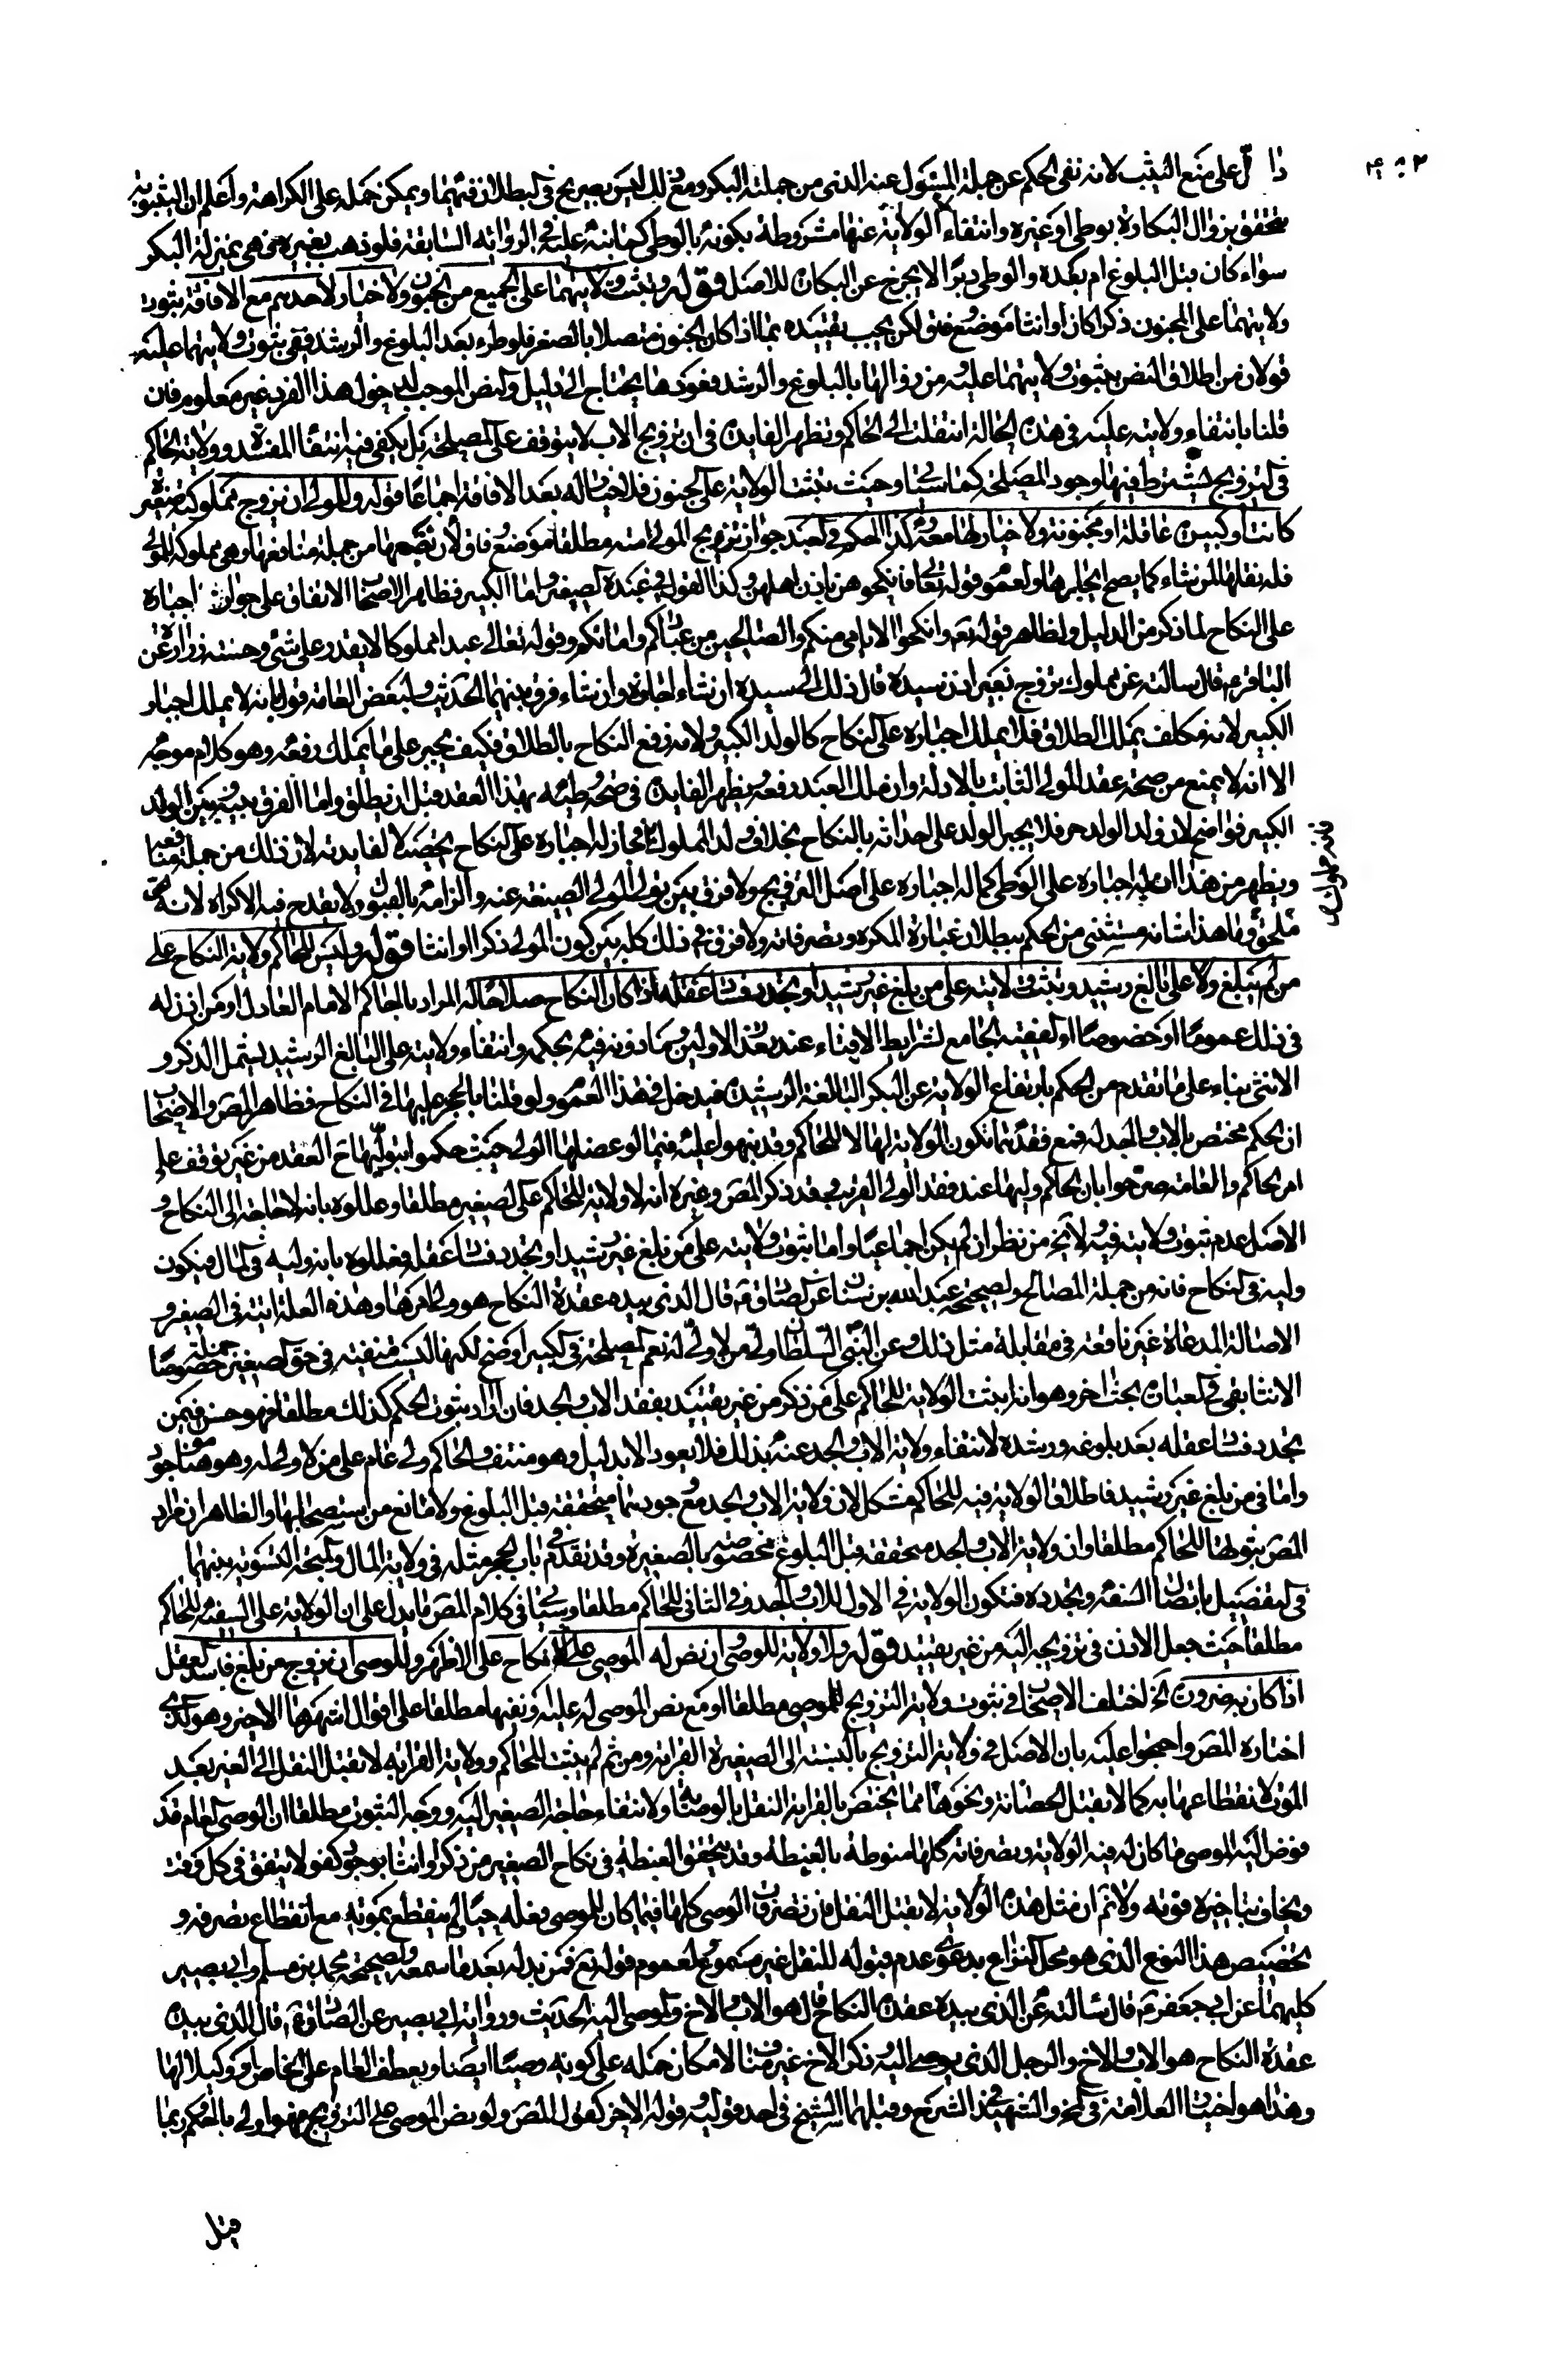 دالّ على منع الثيب لانه نفى الحكم عن جملة المسئول عنه الذى من جملته البكر ومع ذلك ليس بصريح فى البطلان فيهما ويمكن حمله على الكراهة واعلم ان الثيبوبة
تتحقق بزوال البكارة بوطى او غيره وانتفاء الولاية عنها مشروطة بكونه بالوطى كما نبه عليه فى الرواية السابقة فلو ذهب بغيره فهى بمنزلة البكر
سواء كان قبل البلوغ ام بعده والوطى دبرا لا يخرج عن البكارة للاصل قوله وتثبت ولايتهما على الجميع من الجنون ولا خيار لاحدهم مع الافاقة ثبوت
ولايتهما على المجنون ذكرا كان او انثى موضع وفق لكن يجب تقييده بما اذا كان الجنون متصلا بالصغر فلو طرء بعد البلوغ والرشد ففى ثبوت ولايتهما عليه
قولان من اطلاق النص بثبوت ولايتهما عليه ومن زوالها بالبلوغ والرشد فعودها يحتاج الى دليل والنص الموجب لدخول هذا الفرد غير معلوم فان
قلنا بانتفاء ولايته عليه فى هذه الحالة انتقلت الى الحاكم وتظهر الفايدة فى ان تزويج الاب لا يتوقف على المصلحة بل يكفى فيه انتفاء المفسدة وولاية الحاكم
فى التزويج يشترط فيها وجود المصلحة كما سيأتى وحيث تثبت الولاية على المجنون فلا خيار له بعد الافاقة اجماعا قوله وللمولى ان يزوج مملوكته صغيرة
كانت او كبيرة عاقلة او مجنونة ولا خيار لها معه وكذا الحكم فى العبد جواز تزويج المولى امته مطلقا موضع وفاق لان بضعها من جملة منافعها وهى مملوكة للمولى
فله نقلها لمن شاء كما يصح ايجارها ولعموم قوله تعالى فانكحوهن باذن اهلهن وكذا القول فى عبده الصغير واما الكبير فظاهر الاصحاب الاتفاق على جواز اجباره
على النكاح لما ذكر من الدليل ولظاهر قوله تعم وانكحوا الايامى منكم والصالحين من عبادكم وامائكم وقوله تعالى عبدا مملوكا لا يقدر على شئ وحسنة زرارة عن
الباقر م قال سالته عن مملوك تزوج بغير اذن سيده قال ذلك الى سيده ان شاء اجازه وان شاء فرق بينهما الحديث ولبعض العامة قول بانه لا يملك اجبار
الكبير لانه مكلف يملك الطلاق فلا يملك اجباره على النكاح كالولد الكبير ولانه رفع النكاح بالطلاق فكيف يجبر على ما يملك رفعه وهو كلام موجه
الا انه لا يمنع من صحة عقد المولى الثابت بالادلة وان ملك العبد رفعه ويظهر الفايدة فى صحة وطئه بهذا العقد قبل ان يطلق واما الفرق بينه وبين الولد
الكبير فواضح لان ولد الولد حر فلا يجبر الولد على احداثه بالنكاح بخلاف ولد المملوك فجاز له اجباره على النكاح تحصيلا لفايدته لان ذلك من جملة منافعه
ويظهر من هذا ان له اجباره على الوطى كما له اجباره على اصل التزويج ولا فرق بين تولى المولى الصيغة عنه والزامه بالقبول ولا يقدح فيه الاكراه لانه بحق
ملحق وما هذا شانه مستثنى من الحكم ببطلان عبارة المكره وتصرفاته ولا فرق فى ذلك كله بين كون المولى ذكرا او انثى قوله وليس للحاكم ولاية النكاح على
من لم يبلغ ولا على بالغ رشيد وتثبت ولايته على من بلغ غير رشيد او تجدد فساد عقله اذا كان النكاح صلاحا له المراد بالحاكم الامام العادل او من اذن له
فى ذلك عموما او خصوصا او الفقيه الجامع لشرايط الافتاء عند تعذر الاولين وماذونه فيه بحكمه وانتفاء ولايته على البالغ الرشيد يشمل الذكر و
الانثى بناء على ما تقدم من الحكم بارتفاع الولاية عن البكر البالغة الرشيدة فيدخل فى هذا العموم ولو قلنا بالحجر عليها فى النكاح فظاهر المصر والاصحاب
ان الحكم مختص بالاب والجد له فمع فقدهما تكون الولاية لها لا للحاكم وقد نبهوا عليه فيما لو عضلها الولى حيث حكموا بتوليها ح العقد من غير توقف على
امر الحاكم والعامة صرحوا بان الحاكم وليها عند فقد الولى القريب وقد ذكر المصر وغيره انه لا ولاية للحاكم على الصغير مطلقا وعللوه بانه لا حاجة الى النكاح و
الاصل عدم ثبوت ولايته فيه ولا يخ من نظر ان لم يكن اجماعيا واما ثبوت ولايته على من بلغ غير رشيد او تجدد فساد عقله فعللوه بانه وليه فى المال فيكون
وليه فى النكاح فانه من جملة المصالح ولصحيحة عبد الله بن سنان عن الصادق م قال الذى بيده عقدة النكاح هو ولى امرها وهذه العلة اتية فى الصغير و
الاصالة المدعاة غير نافعة فى مقابلة مثل ذلك وعن النبى السلطان ولى من لا ولى له نعم المصلحة فى الكبير اوضح لكنها ليست منفية فى حق الصغير جملة خصوصا
الانثى بقى فى العبارة بحث اخر وهو انه اثبت الولاية للحاكم على من ذكر من غير تقييد بفقد الاب والجد فان اراد ثبوت الحكم كذلك مطلقا فهو حسن فيمن
تجدد فساد عقله بعد بلوغه ورشده لانتفاء ولاية الاب والجد عنه بذلك فلا يعود الا بدليل وهو منتف والحاكم ولى عام على من لا ولى له وهو هنا موجود
واما فى من بلغ غير رشيد فاطلاق الولاية فيه للحاكم مشكل لان ولاية الاب والجد مع وجودهما متحققة قبل البلوغ ولا مانع من استصحابها والظاهر ان مراد
المصر ثبوتها للحاكم مطلقا وان ولاية الاب والجد متحققة قبل البلوغ مخصوصة بالصغيرة وقد تقدم فى باب الحجر مثله فى ولاية المال والمتجه التسوية بينهما
فى التفصيل باتصال السفه وتجدده فتكون الولاية فى الاول للاب والجد وفى الثانى للحاكم مطلقا وسيأتى فى كلام المصر ما يدل على ان الولاية على السفيه للحاكم
مطلقا حيث جعل الاذن فى تزويجه اليه من غير تقييد قوله ولا ولاية للوصى وان نص له الموصى على النكاح على الاظهر وللوصى ان يزوج من بلغ فاسد العقل
اذا كان به ضرورة الخ اختلف الاصحاب فى ثبوت ولاية التزويج للوصى مطلقا او مع نص الموصى له عليه ونفيها مطلقا على اقوال اشهرها الاخير وهو الذى
اختاره المصر واحتجوا عليه بان الاصل فى ولاية التزويج بالنسبة الى الصغيرة القرابة ومن ثم لم يثبت للحاكم وولاية القرابة لا تقبل النقل الى الغير بعد
الموت لانقطاعها به كما لا تقبل الحضانة ونحوها مما يختص بالقرابة النقل بالوصاية ولانتفاء حاجة الصغير اليه ووجه الثبوت مطلقا ان الوصى العام قد
فوض اليه الموصى ما كان له فيه الولاية وتصرفاته كلها منوطة بالغبطة وقد يتحقق الغبطة فى نكاح الصغير من ذكر وانثى بوجود كفو لا يتفق فى كل وقت
ويخاف بتاخيره فوته ولا نم ان مثل هذه الولاية لا تقبل النقل فان تصرفات الوصى كلها فيما كان للموصى فعله حيا لم ينقطع بموته مع انقطاع تصرفه و
تخصيص هذا النوع الذى هو محل النزاع بدعوى عدم قبوله للنقل غير مسموع ولعموم قوله تع فمن بدله بعد ما سمعه ولصحيحة محمد بن مسلم وابى بصير
كليهما عن ابى جعفر م قال سالته عن الذى بيده عقدة النكاح قال هو الاب والاخ والموصى اليه الحديث ورواية ابى بصير عن الصادق م قال الذى بيده
عقدة النكاح هو الاب والاخ والرجل الذى يوصى اليه وذكر الاخ غير مناف لامكان حمله على كونه وصيا ايضا ويعطف العام على الخاص او وكيلا لها
وهذا هو اختيار العلامة فى المخ والشهيد فى شرح وقبلهما الشيخ فى احد قوليه وقوله الاخر كقول المصر ولو نص الموصى على التزويج فهو اولى بالحكم وربما
قيل